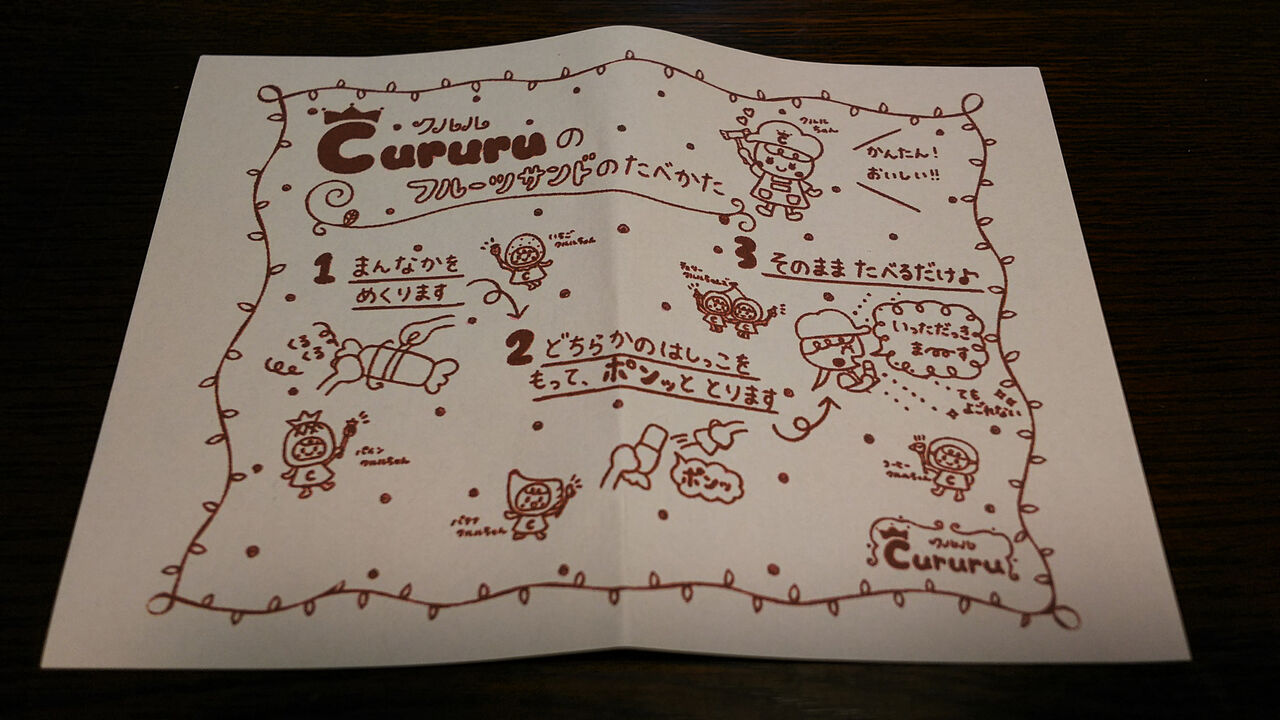 クルル
Cururuの
フルーツサンドのたべかた
クルル
ちゃん
かんたん!
おいしい!!
1 まんなかを
めくります
いちご
クルルちゃん
くる
くる
2 どちらかのはしっこを
もって、ポンッと とります
ポンッ
3 そのまま たべるだけよ
チェリー
クルルちゃんズ
いっただっき
まーーす
ても
よごれない
パイン
クルルちゃん
バナナ
クルルちゃん
コーヒー
クルルちゃん
クルル
Cururu